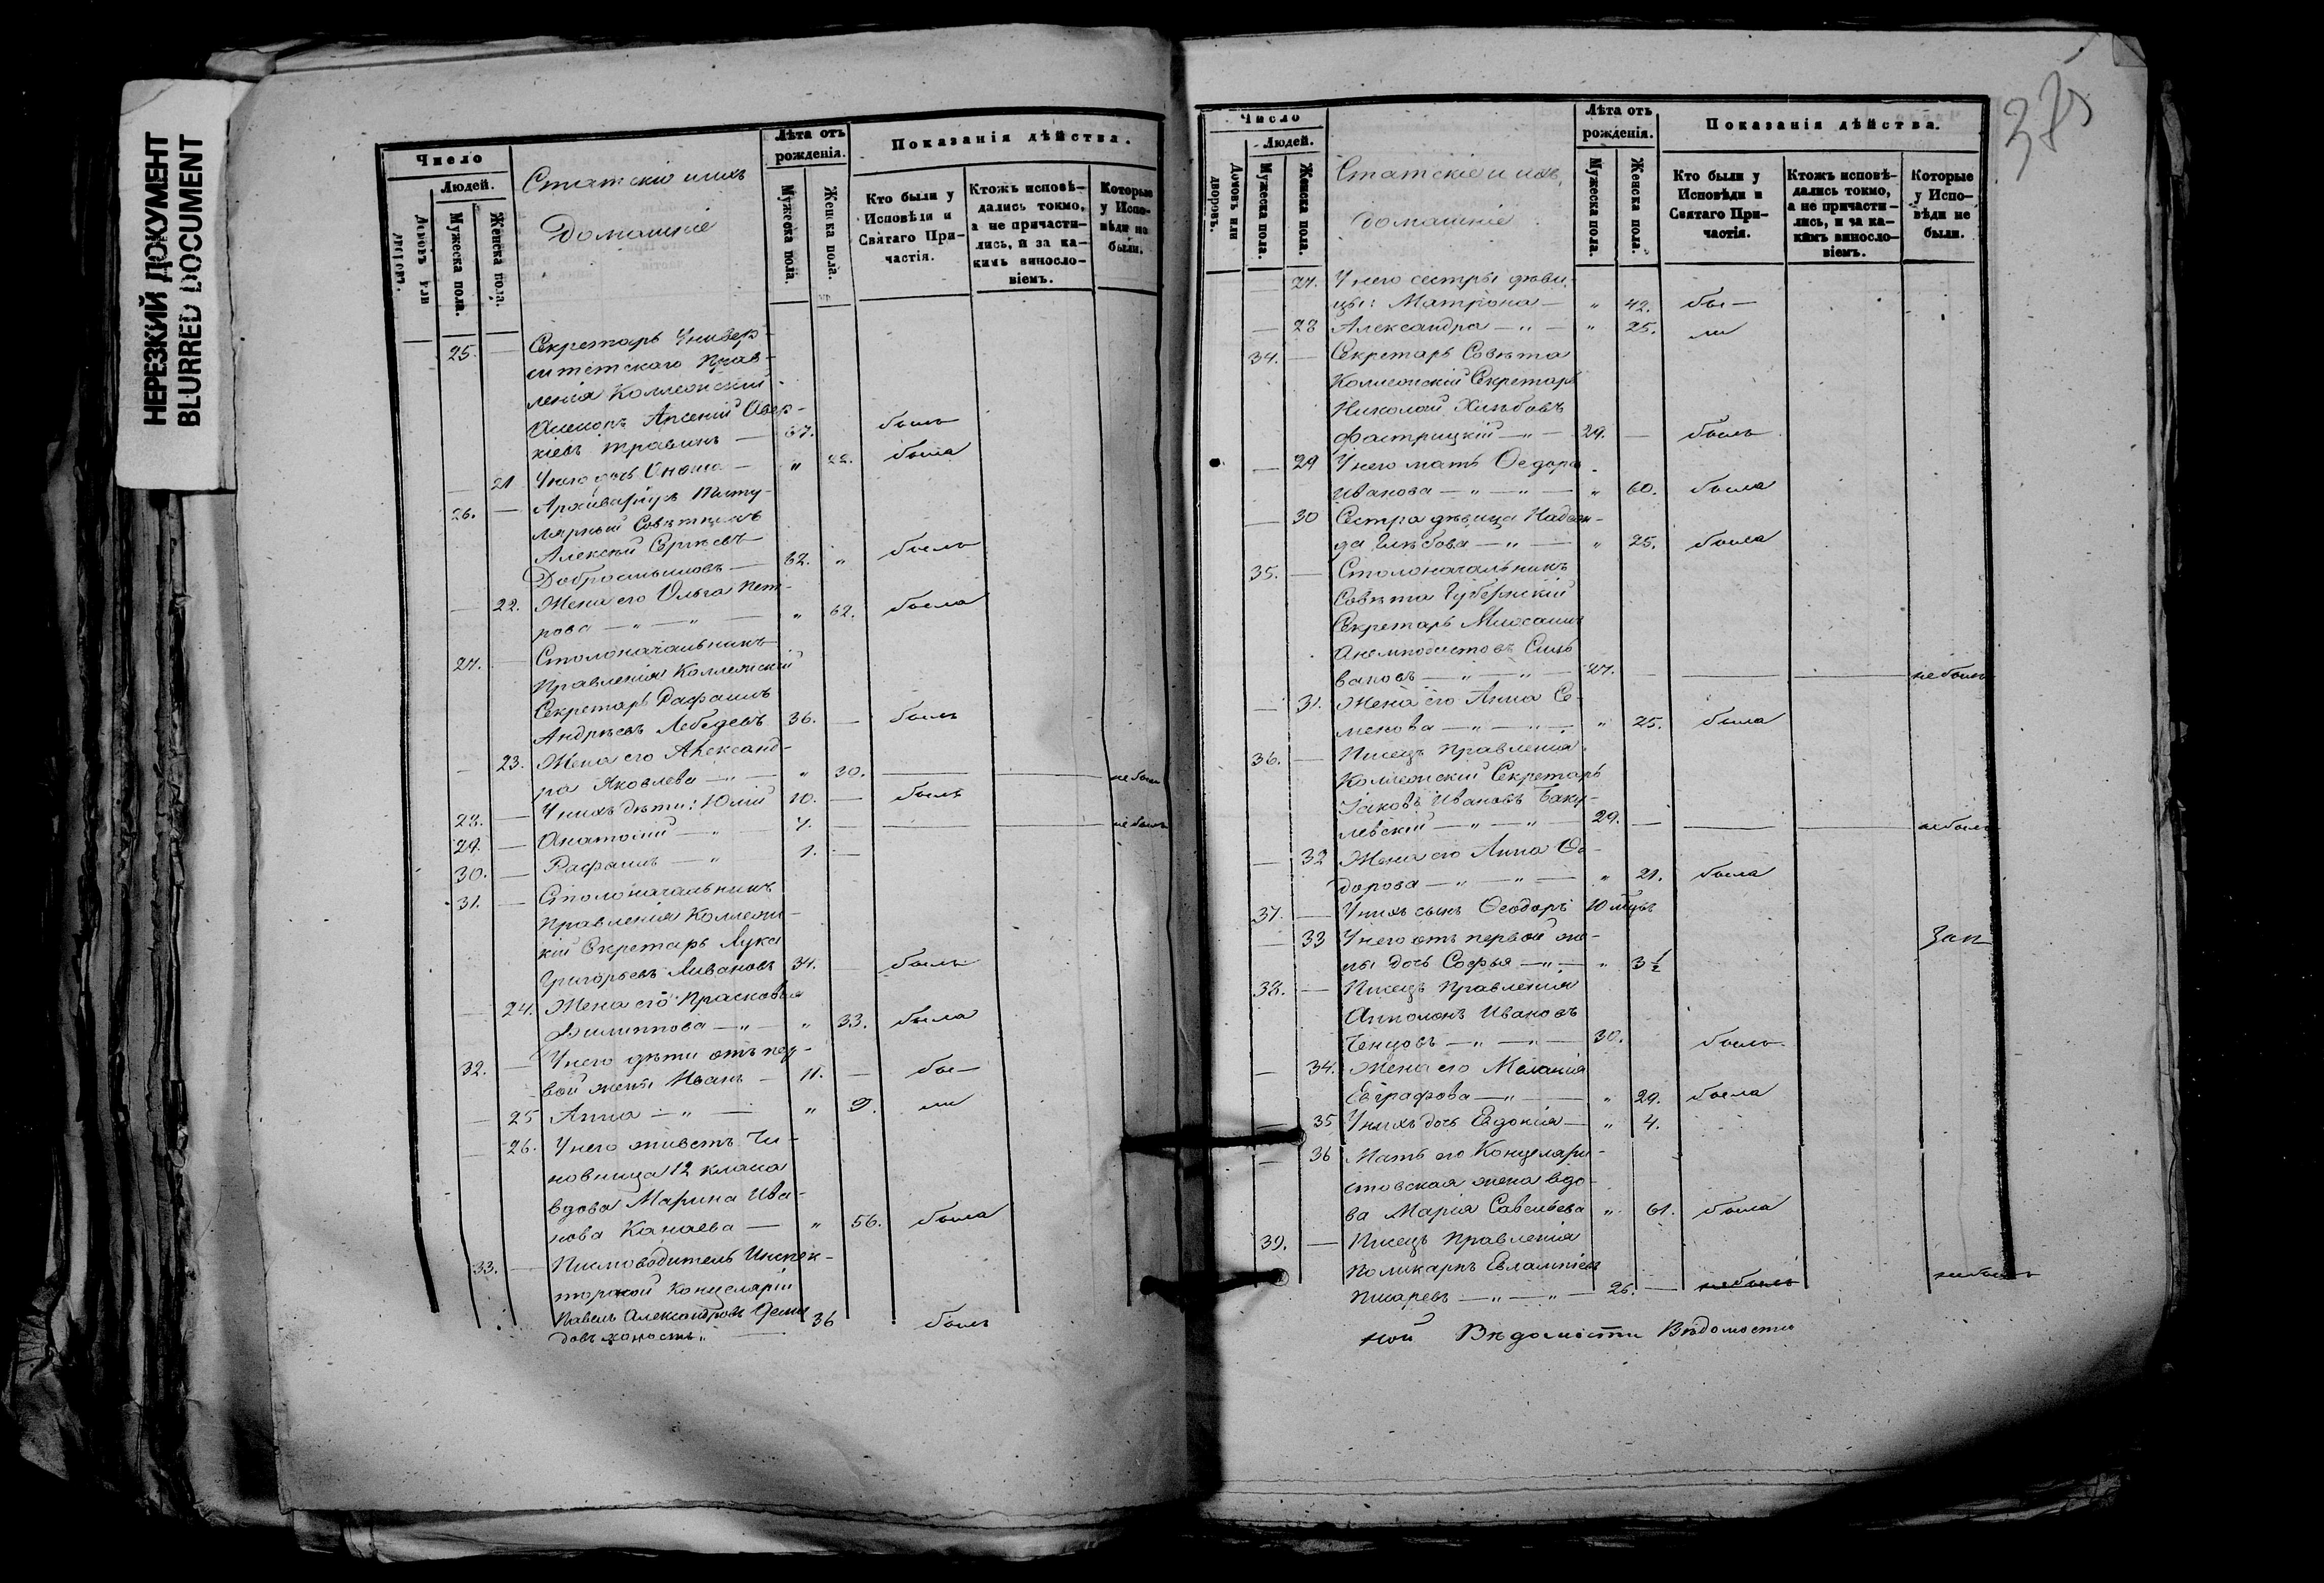 НЕРЕЗКИЙ ДОКУМЕНТ
BLURRED DOCUMENT
Число
Людей.
Мужеска пола.
Женска пола.
Статскіе и ихъ
Домашніе
Лѣта отъ рожденія.
Мужеска пола.
Женска пола.
Показанія дѣйства.
Кто были у Исповѣди и Святаго Причастія.
Ктожъ исповѣдались токмо, а не причастились, и за какимъ винословіемъ.
Которые у Исповѣди не были.
25. — Секретарь Универ-
ситетскаго Прав-
ленія Коллежскій
Арсеній Авер-
кіевъ Травинъ — 67. былъ
— 21 У него дочь — " 22. была
26. — Архиваріусъ Титу-
лярный Совѣтникъ
Алексѣй Сергѣевъ
Добросмысловъ — 62. " былъ
— 22. Жена его Ольга Пет-
рова — " — " — " 62. была
27. — Столоначальникъ
Правленія Коллежскій
Секретарь Рафаилъ
Андреевъ Лебедевъ 36. — былъ
— 23. Жена его Александ-
ра Яковлева — " — " 30. — — не была
28. — У нихъ дѣти: Юлій 10. — былъ
29. — Анатолій — " 7. — — — не былъ
30. — Рафаилъ — " 1. —
31. — Столоначальникъ
Правленія Коллежс-
кій Секретарь Лука
Григорьевъ Ливановъ 34. — былъ
— 24. Жена его Прасковья
Филиппова — " — " 33. была
32. — У него дѣти отъ пер-
вой жены Иванъ — 11. — бы-
— 25 Анна — " — " 9. ли
— 26. У него живетъ Чи-
новница 12 класса
вдова Марина Ива-
нова Канаева — " 56. была
33. — Писмоводитель Инспек-
торской Канцеляріи
Павелъ Александровъ Деми
довъ холостъ " — 36 былъ
385
Число
Людей.
Домовъ или дворовъ.
Мужеска пола.
Женска пола.
Статскіе и ихъ
домашніе
Лѣта отъ рожденія.
Мужеска пола.
Женска пола.
Показанія дѣйства.
Кто были у Исповѣди и Святаго Причастія.
Ктожъ исповѣдались токмо, а не причастились, и за какимъ винословіемъ.
Которые у Исповѣди не были.
— 27. У него сестры дѣви-
цы: Матрона — " 42. бы —
— 28 Александра — " — " 25. ли
34. — Секретарь Совѣта
Коллежскій Секретарь
Николай Хлѣбовъ
— " — 29. — былъ
— 29 У него мать Ѳедора
Иванова — " — " — " 60. была
— 30 Сестра дѣвица Надеж-
да Глѣбова — " — " 25. была
35. — Столоначальникъ
Совѣта Губернскій
Секретарь Михаилъ
Анемподистовъ Силь
вановъ — " — " — 27. — — — не былъ
— 31. Жена его Анна Се-
менова — " — " — " 25. была
36. — Писецъ Правленія
Коллежскій Секретарь
Іаковъ Ивановъ Баку-
левскій — " — " — 29. — — — не былъ
— 32 Жена его Анна Ѳе-
дорова — " — " — " 21. была
37. — У нихъ сынъ Ѳеодоръ 10 мѣсяц.
— 33 У него отъ первой же-
ны дочь Софья — " — " 3½
38. — Писецъ Правленія
Апполонъ Ивановъ
Ченцовъ — " — " — 30. былъ
— 34. Жена его Меланія
Евграфова — " — " 29. была
— 35 У нихъ дочь Евдокія — " 4.
— 36 Мать его Канцеляри-
стовская жена вдо-
ва Марія Савельева " 61. была
39. — Писецъ Правленія
Поликарпъ Евлампіевъ
Писаревъ — " — " — 26. — не былъ не былъ
ной Вѣдомости Вѣдомости